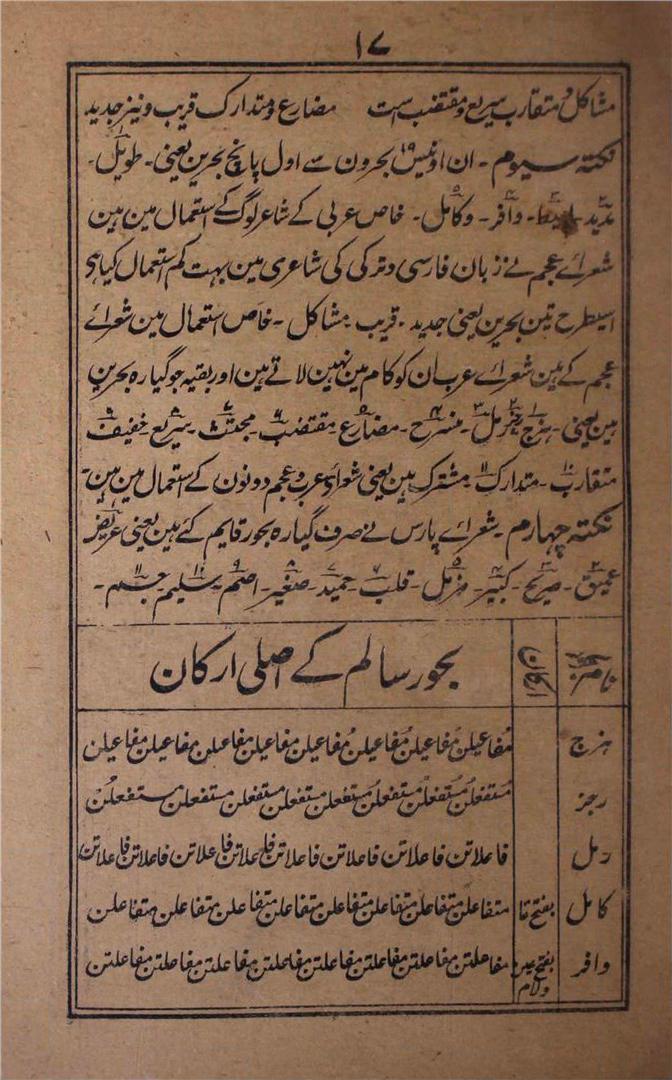 ۱۷
مشاکل و متقارب سریع و مقتضب است مضارع و متدارک قریب و نیز جدید
نکتہ سیوم ۔ ان اونیس ۱۹ بحرون سے اول پانچ بحرین یعنی ۔ طویل ۔
مدید ۔ وافر ۔ وکامل ۔ خاص عربی کے شاعر لوگ کے استعمال مین ہین
شعرائے عجم نے زبان فارسی و ترکی کی شاعری مین بہت کم استعمال کیا ہی
اسیطرح تین بحرین یعنی جدید ۔ قریب ۔ مشاکل ۔ خاص استعمال مین شعرائے
عجم کے ہین شعرائے عرب ان کو کام مین نہین لاتے ہین اور بقیہ جو گیارہ بحرین
ہین یعنی ۔ ہزج ۔ منسرح ۔ مضارع ۔ مقتضب ۔ مجتث ۔ سریع ۔ خفیف
متقارب ۔ متدارک ۔ مشترک ہین یعنی شعراء عرب و عجم دونون کے استعمال مین ہین ۔
نکتہ چہارم ۔ شعرائے پارس نے صرف گیارہ بحور قایم کئے ہین یعنی عریض
عمیق ۔ صریح ۔ کبیر ۔ مزمل ۔ قلب ۔ حمید ۔ صغیر ۔ اصم ۔ سلیم ۔ حمیم ۔
نام بحر اوزان بحور سالم کے اصلی ارکان
ہزج مفاعیلن مفاعیلن مفاعیلن مفاعیلن مفاعیلن مفاعیلن مفاعیلن مفاعیلن
رجز مستفعلن مستفعلن مستفعلن مستفعلن مستفعلن مستفعلن مستفعلن مستفعلن
رمل فاعلاتن فاعلاتن فاعلاتن فاعلاتن فاعلاتن فاعلاتن فاعلاتن فاعلاتن
کامل بفتح تا متفاعلن متفاعلن متفاعلن متفاعلن متفاعلن متفاعلن متفاعلن متفاعلن
وافر بفتح عین ولام مفاعلتن مفاعلتن مفاعلتن مفاعلتن مفاعلتن مفاعلتن مفاعلتن مفاعلتن